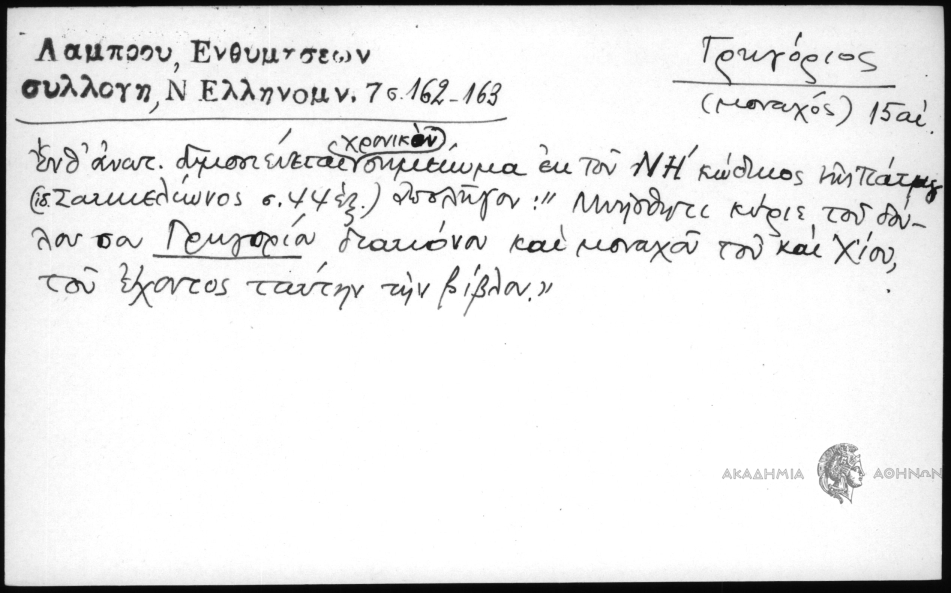 Λαμπρου, Ενθυμησεων
συλλογη, Ν Ελληνομν. 7 σ. 162-163
Γρηγόριος
(μοναχός) 15 αἰ.
χρονικὸν
Ἐνθ' ἀνωτ. δημοσιεύεται σημείωμα ἐκ τοῦ ΝΗ' κώδικος τῆς Πάτμου
(ἰδ. Σακκελίωνος σ. 44 ἑξ.) ἀπολῆγον: " Μνήσθητι κύριε τοῦ δού-
λου σου Γρηγορίου διακόνου καὶ μοναχοῦ τοῦ καὶ Χίου,
τοῦ ἔχοντος ταύτην τὴν βίβλον."
ΑΚΑΔΗΜΙΑ ΑΘΗΝΩΝ